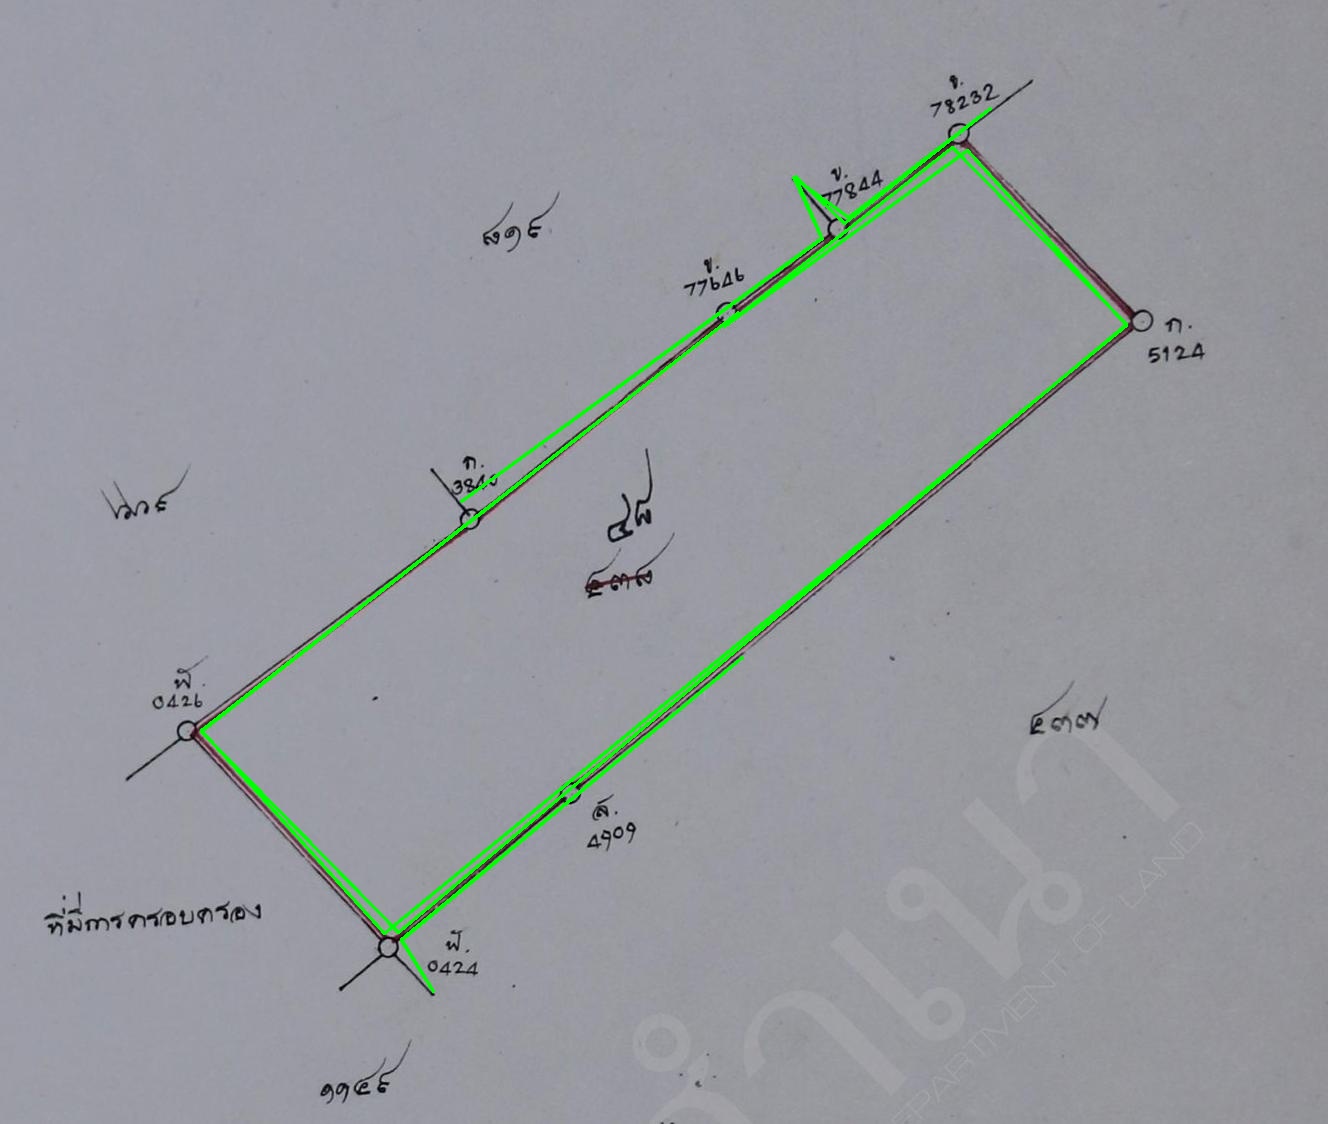 ข.
78232
ข.
77844
๘๑๙
ข.
77646
ก.
5124
ก.
๔๘
๕๓๘
ฬ.
0426
๕๓๗
ล.
4909
ที่มีการครอบครอง
ฬ.
0424
๑๑๕๙
DEPARTMENT OF LAND